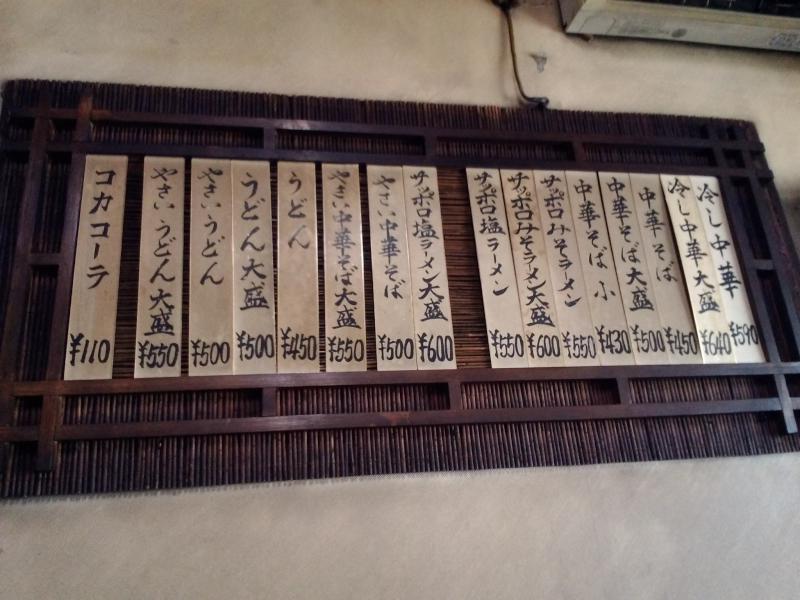 冷し中華 ¥590
冷し中華大盛 ¥640
中華そば ¥450
中華そば大盛 ¥500
中華そば小 ¥430
サッポロみそラーメン ¥550
サッポロみそラーメン大盛 ¥600
サッポロ塩ラーメン ¥550
サッポロ塩ラーメン大盛 ¥600
やさい中華そば ¥500
やさい中華そば大盛 ¥550
うどん ¥450
うどん大盛 ¥500
やさいうどん ¥500
やさいうどん大盛 ¥550
コカコーラ ¥110